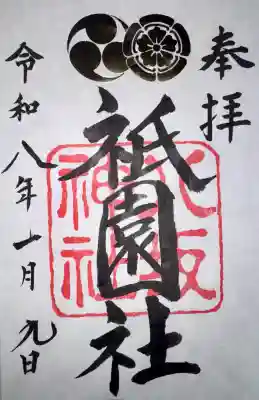 奉拝
祇園社
八坂
神社
令和八年一月九日